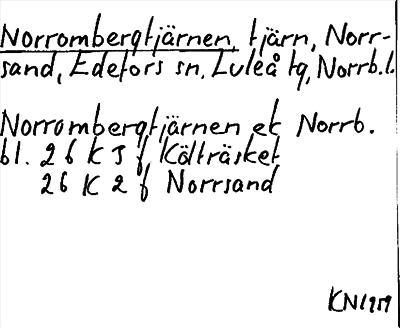 Norrombergtjärnen, tjärn, Norr-
sand, Edefors sn, Luleå tg, Norrb.l.
Norrombergtjärnen ek Norrb.
bl. 26 K 3 f Kälträsket
26 K 2 f Norrsand